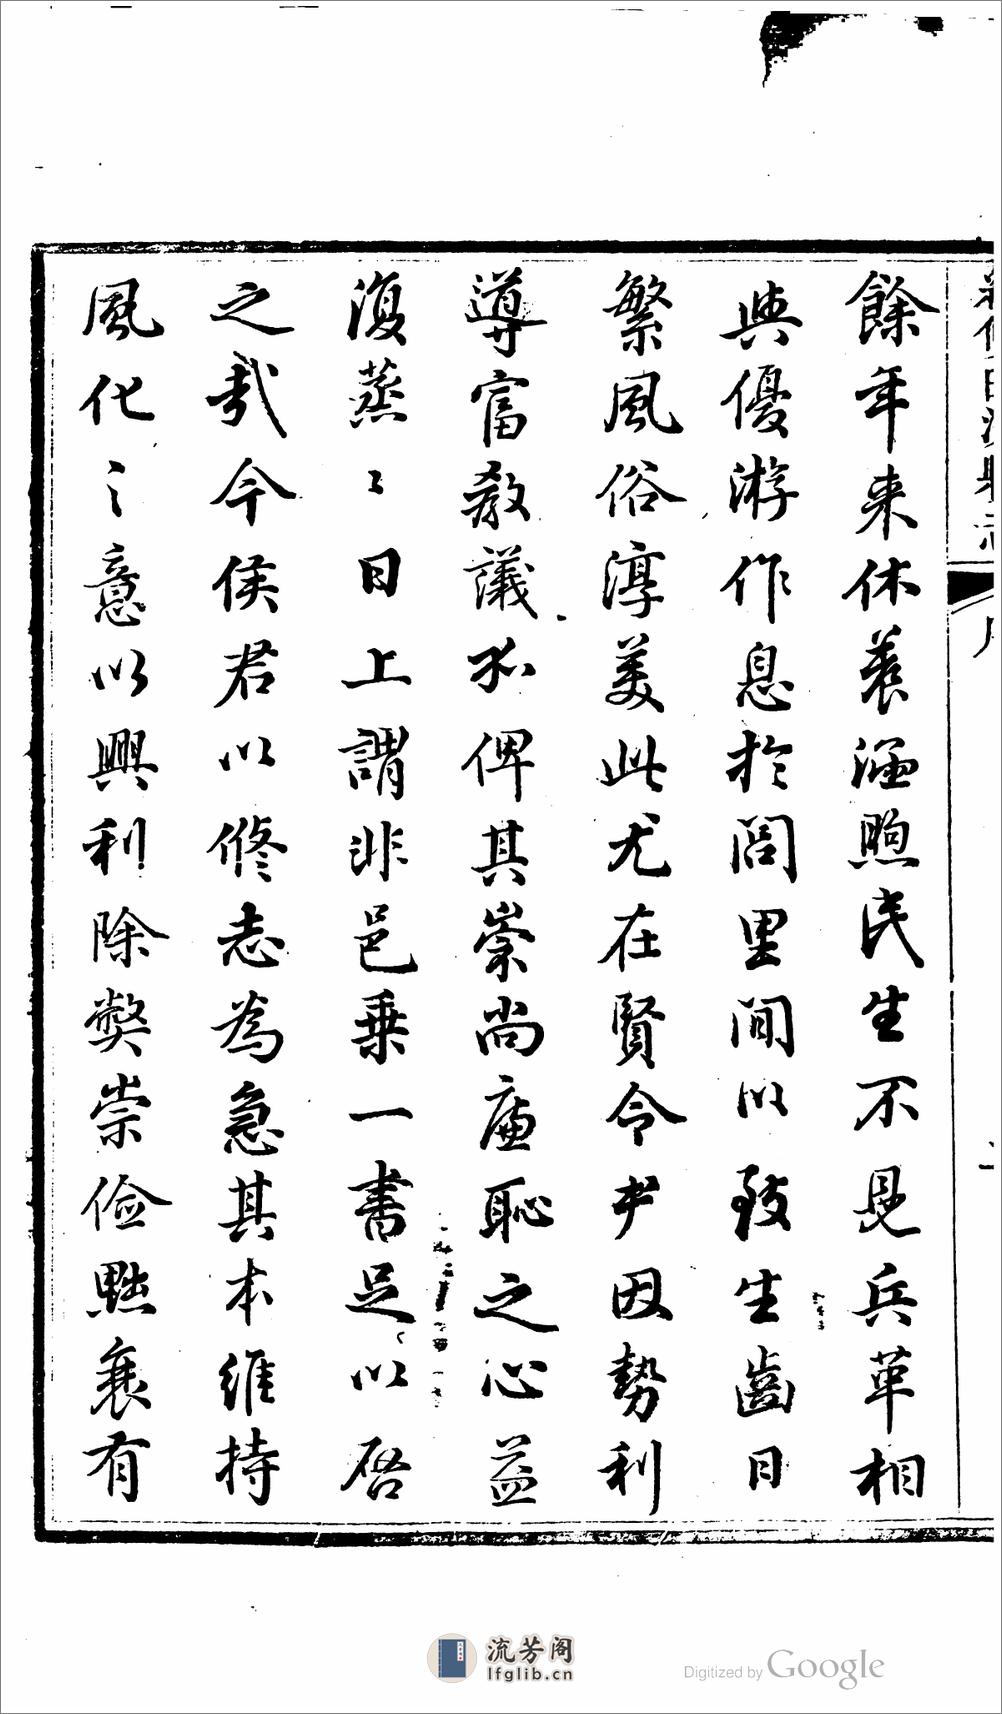 餘年來休養涵煦民生不見兵革相
與優游作息於閭里間以致生齒日
繁風俗淳美此尤在賢令尹因勢利
導富教議行俾其崇尚廉恥之心益
復蒸〻日上謂非邑乗一書足以啓
之哉今侯君以修志為急其本維持
風化之意以興利除獘崇儉黜衺有
流芳阁
lfglib.cn
Digitized by Google